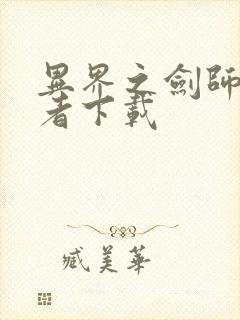 異界之劍師
者下載
臧美華